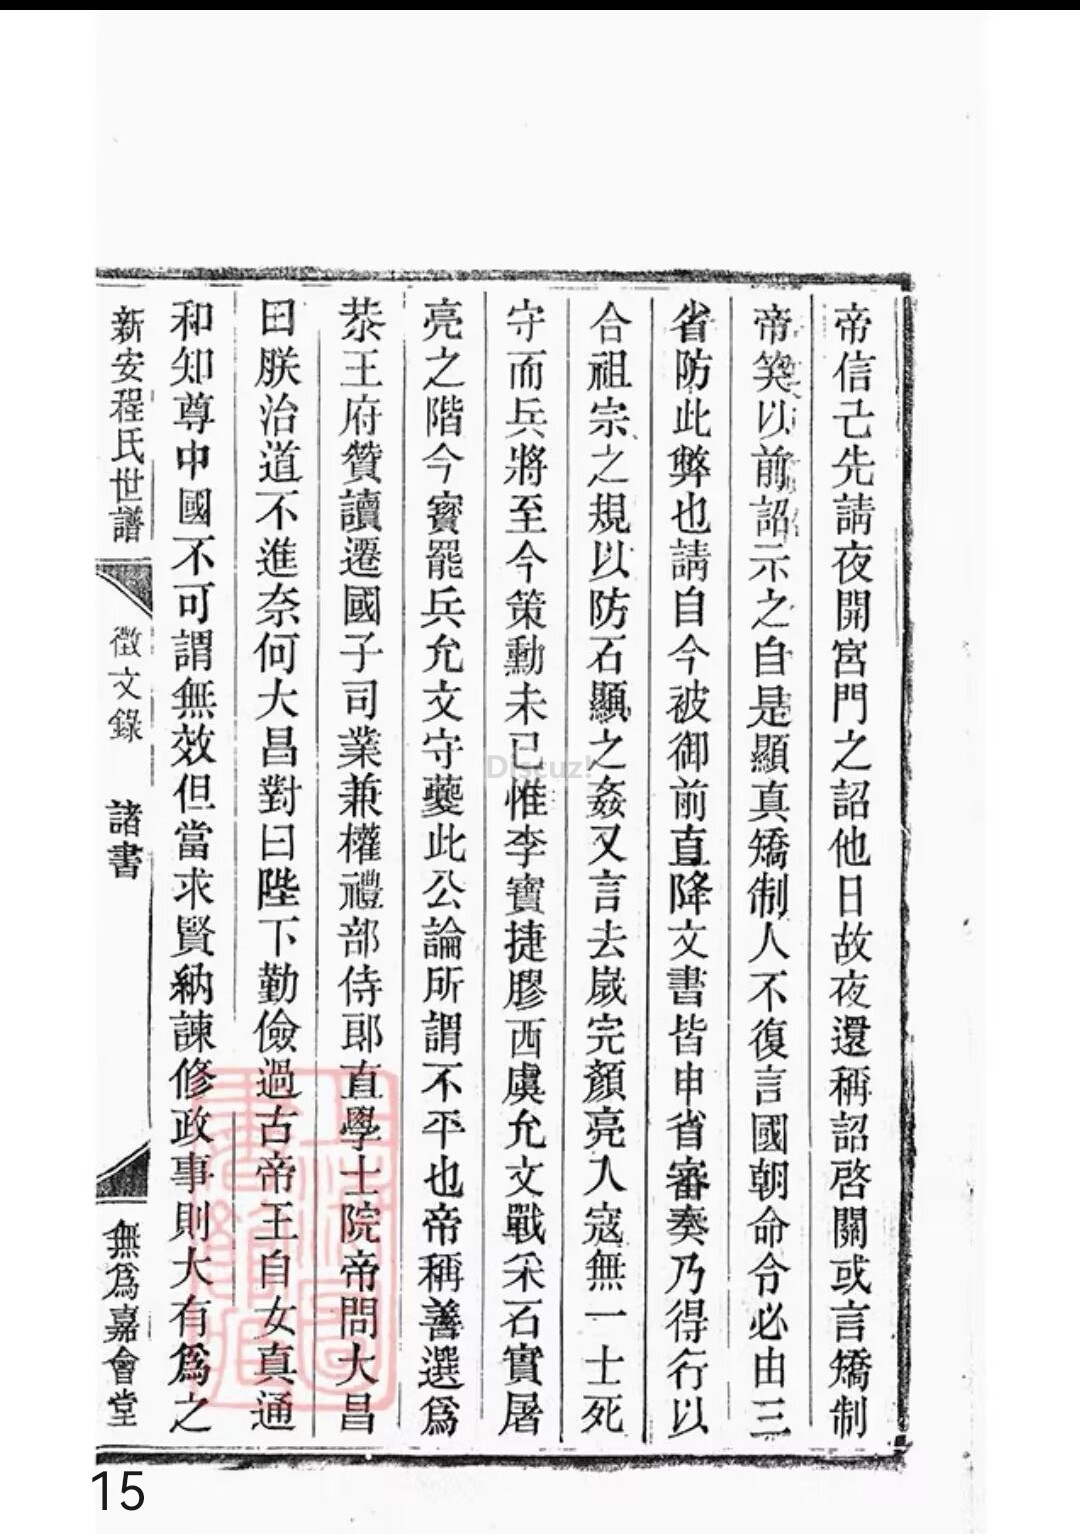 帝信己先請夜開宮門之詔他日故夜還稱詔啓關或言矯制
帝笑以前詔示之自是顯真矯制人不復言國朝命令必由三
省防此弊也請自今被御前直降文書皆申省審奏乃得行以
合祖宗之規以防石顯之姦又言去歲完顏亮入寇無一士死
守而兵將至今策勳未已惟李寶捷膠西虞允文戰采石實屠
亮之階今寳罷兵允文守夔此公論所謂不平也帝稱善選爲
恭王府贊讀遷國子司業兼權禮部侍郎直學士院帝問大昌
曰朕治道不進奈何大昌對曰陛下勤儉過古帝王自女真通
和知尊中國不可謂無效但當求賢納諫修政事則大有爲之
新安程氏世譜 徵文錄 諸書 無爲嘉會堂
上海圖書館藏
Discuz!
15